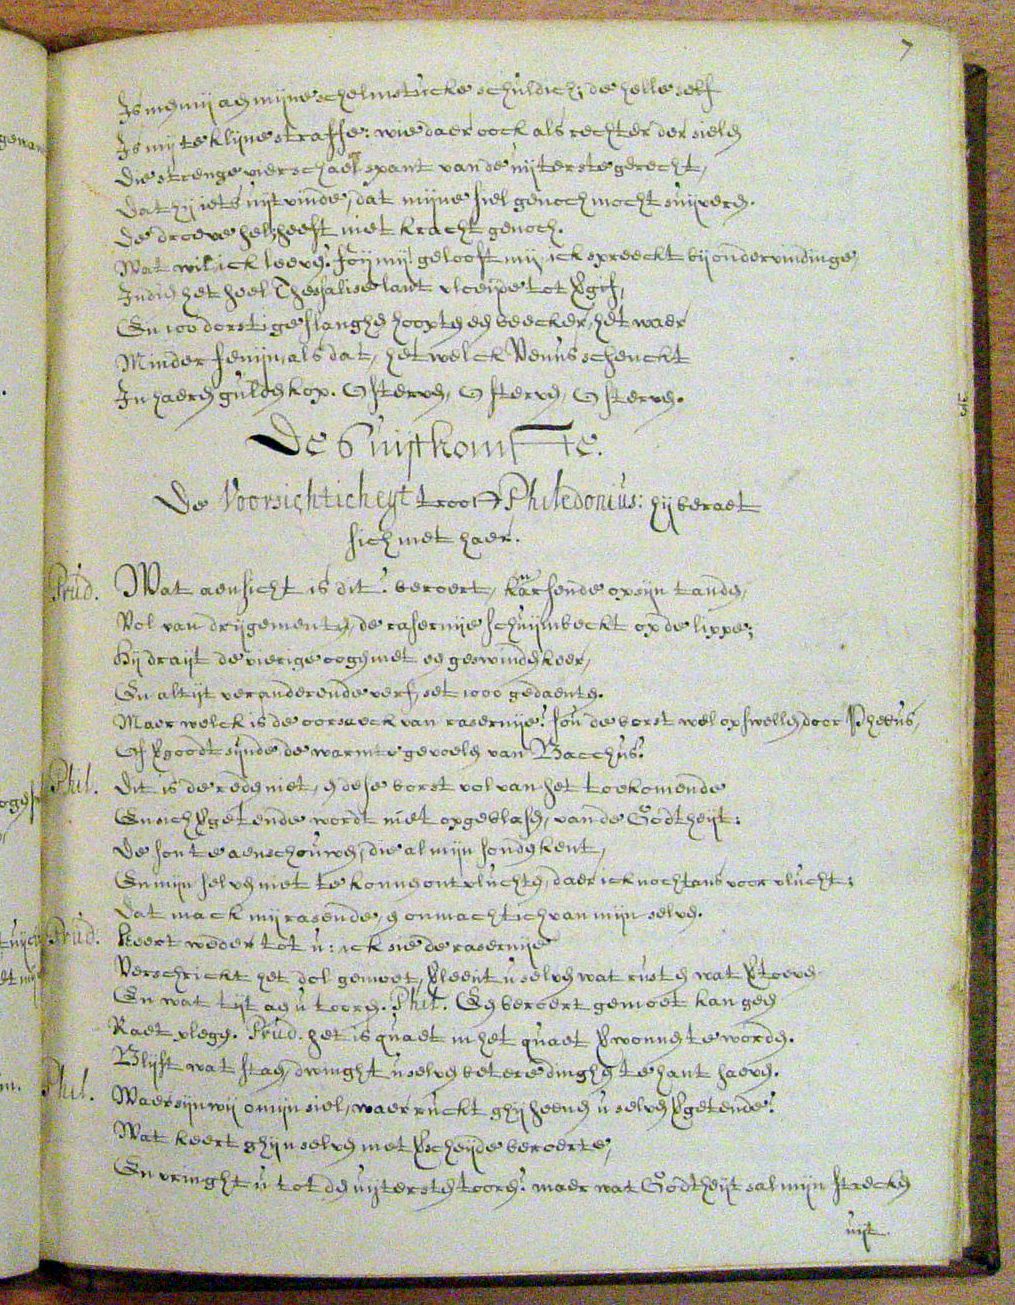 7
Is men mij aen mijne schelmstucke schuldich; de helle self
Is mij te klijne straffe: wie daer oock als rechter der sielen
Die strenge vierschaer spant van de uijterste gerecht,
Dat hij iets uijt vinde, dat mijne siel genoch mocht suijveren.
De droeve hel heeft niet kracht genoch.
Wat wil ick leeven? mij gelooft mij ick spreeckt bij ondervindinge
Indien het heel Thessalise lant vloeijde tot
En 100 dorstige slanghen hoopten een beecker, het waer
Minder fenijn, als dat, het welck Venus schenckt
In haeren gulden kop. O sterven, O sterven, O sterven.
De 6 uijtkomste.
De Voorsichticheyt troost Philedonius: hij beraet
sich met haer.
Prud. Wat aensicht is dit? beroert, knarsende op sijn tanden,
Vol van drijgementen, de rasernije schuijmbeckt op de lippe;
Hij draijt de vierige oogen met een geswinden keer,
En altijt veranderende verf, set 1000 gedaenten.
Maer welck is de oorsaeck van rasernije? sou de borst wel opswellen door Pheebus,
Of vergoodt sijnde de warmte gevoelen van Bacchus?
Phil. Dit is de reden niet, en dese borst vol van het toekomende
En sich vergetende wordt niet opgeblasen, van de Godtheijt:
De sonte aenschouwen, die al mijn sonden kent,
En mijn selven niet te konnen ontvluchten, daer ick nochtans voor vlucht;
Dat mackt mij rasende, en onmachtich van mijn selven.
Prud. Keert weder tot u: ick sie de rasernije
Verschrickt het dol gemoet, verleent u selven wat rusten wat vertoeven
En wat tijt aen u tooren. Phil. Een beroert gemoet kan geen
Raet plegen. Prud. het is quaet in het quaet verwonnen te worden.
Blijft wat staen, dwinght u selven betere dinghen te hant haeven.
Phil. Waer sijn wij o mijn siel, waer ruckt ghij heenen u selven vergetende?
Wat keert ghij u selven met verscheijde beroerte,
En vringht u tot den uijtersten tooren? maer wat Godtheijt sal mijn strecken
uijt